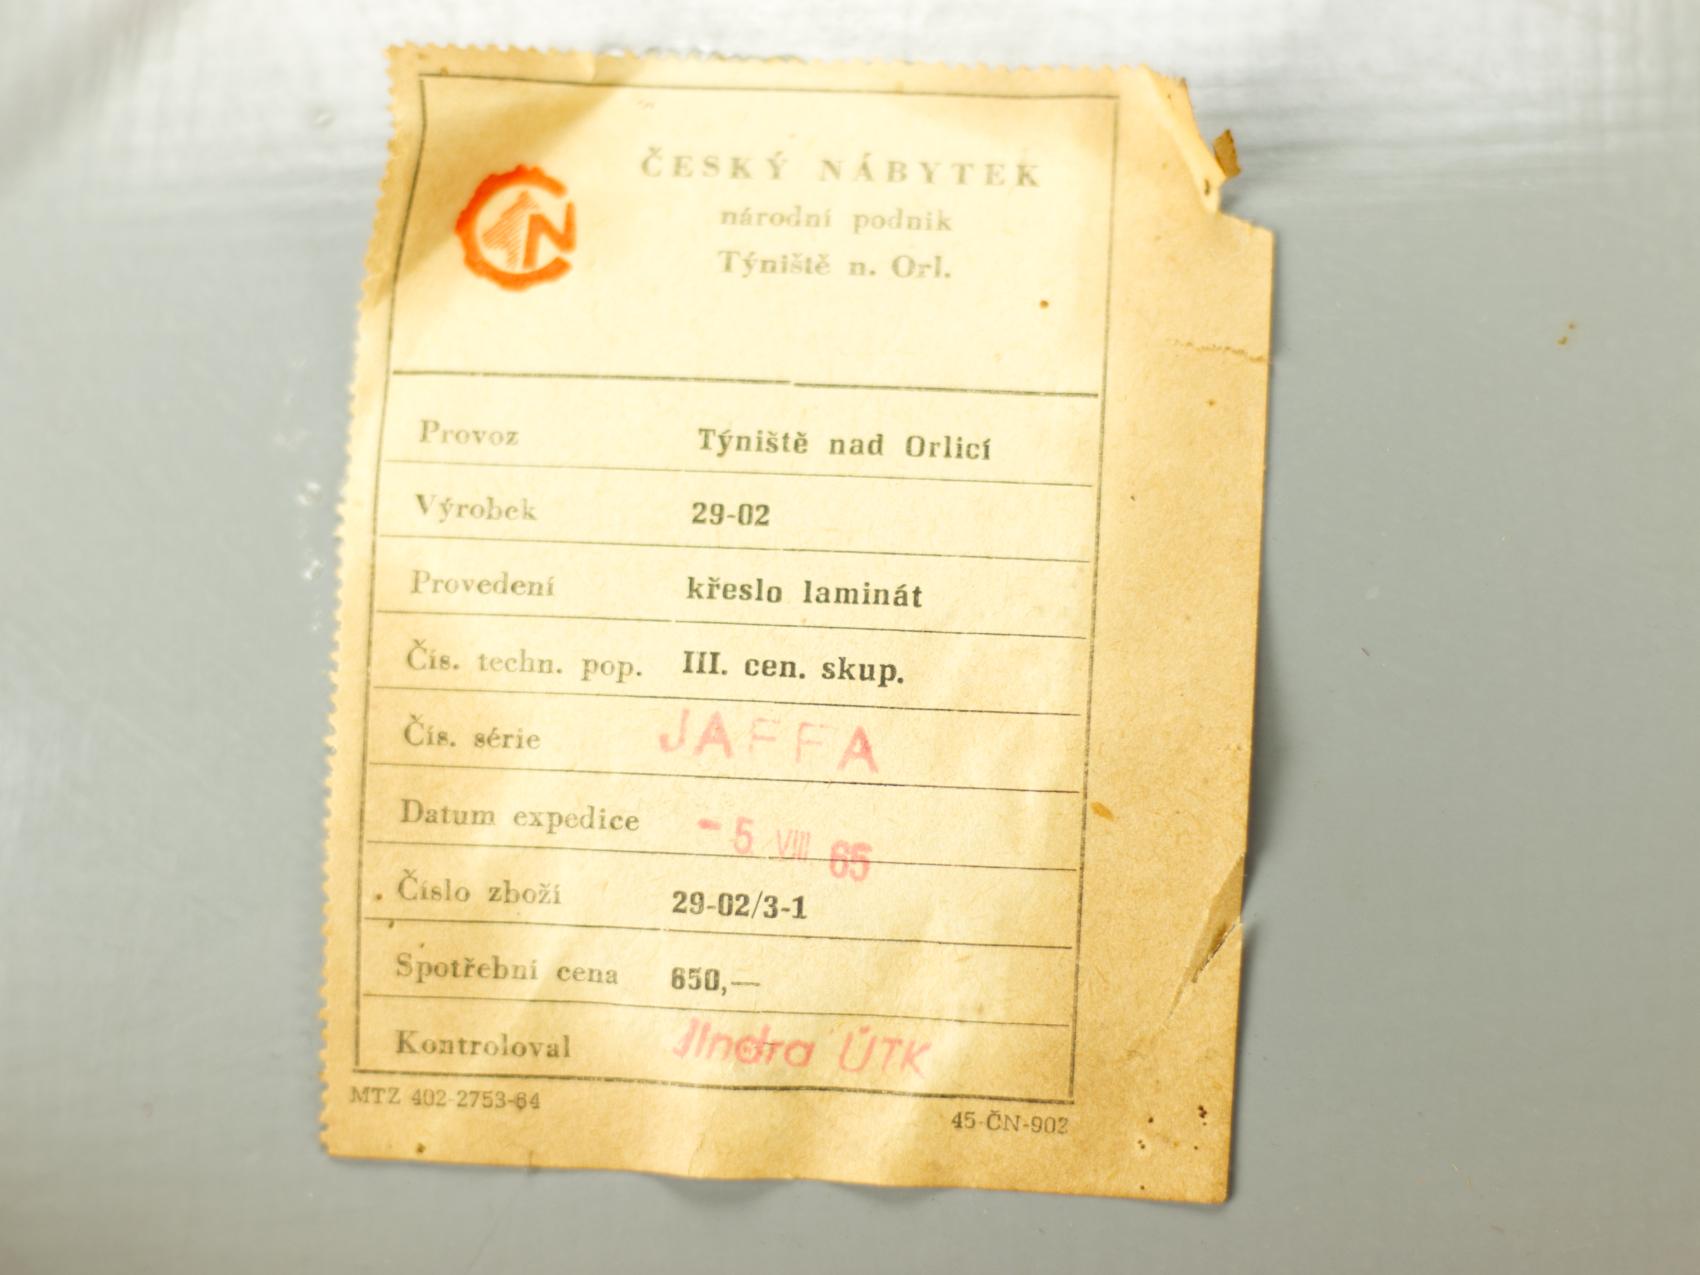 ČESKÝ NÁBYTEK
národní podnik
Týniště n. Orl.
ČN
Provoz Týniště nad Orlicí
Výrobek 29-02
Provedení křeslo laminát
Čís. techn. pop. III. cen. skup.
Čís. série JAFFA
Datum expedice - 5 VIII 65
Číslo zboží 29-02/3-1
Spotřební cena 650,—
Kontroloval Jindra ÚTK
MTZ 402-2753-64
45-ČN-902